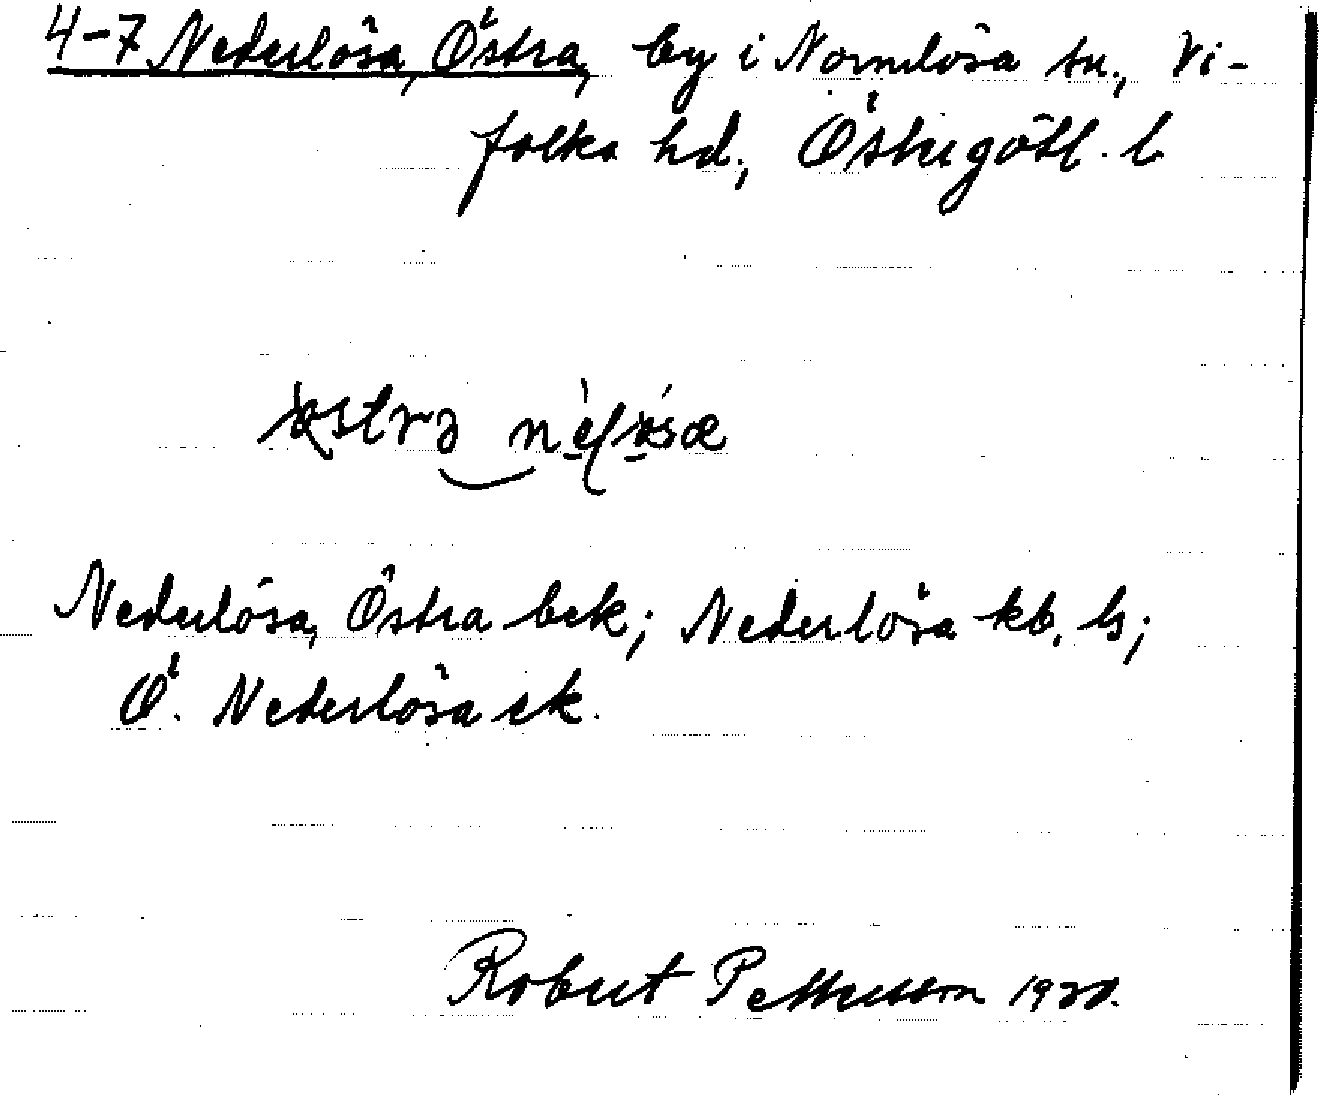 4-7 Nederlösa, Östra, by i Normlösa sn., Vi-
folka hd., Östergötl. l
Nederlösa, Östra bek; Nederlösa kb, ls;
Ö. Nederlösa ek.
Robert Pettersson